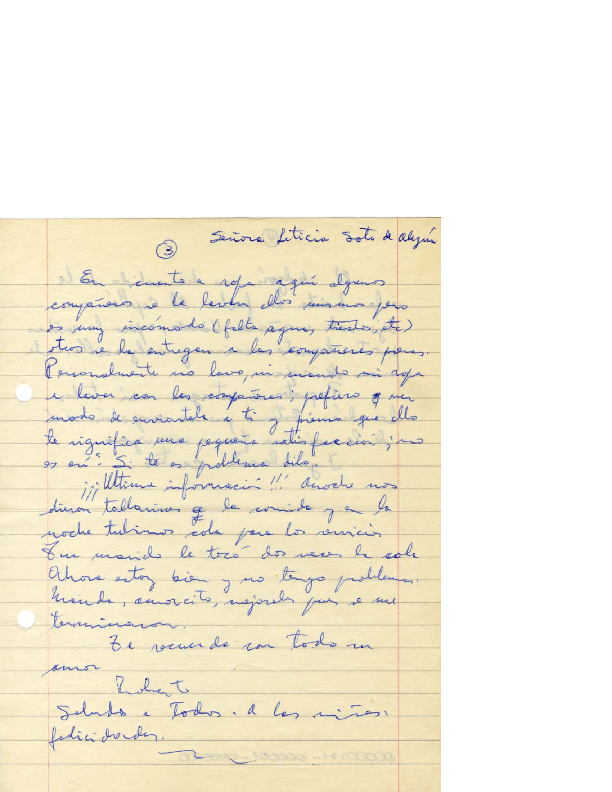 Señora Leticia Soto de
3
En cuanto a ropa aquí algunos
compañeros se la lavan ellos mismos pero
es muy incómodo (falta agua, tiestos, etc)
otros se la entregan a las compañeras presas.
Personalmente no lavo, ni mando mi ropa
a lavar con las compañeras; prefiero ver
modo de enviartela a ti y pienso que ello
te significa una pequeña satisfacción; ¿no
es así? Si te es problema dilo.
¡¡¡Ultima información!!! Anoche nos
dieron tallarines la comida y en la
noche tubimos cola para los servicios
Tu marido le tocó dos veces la cola
Ahora estoy bien y no tengo problemas.
Manda, amorcito, mejorales pues se me
terminaron.
Te recuerda con todo su
amor
Roberto
Saludos a Todos. A las niñas,
felicidades.